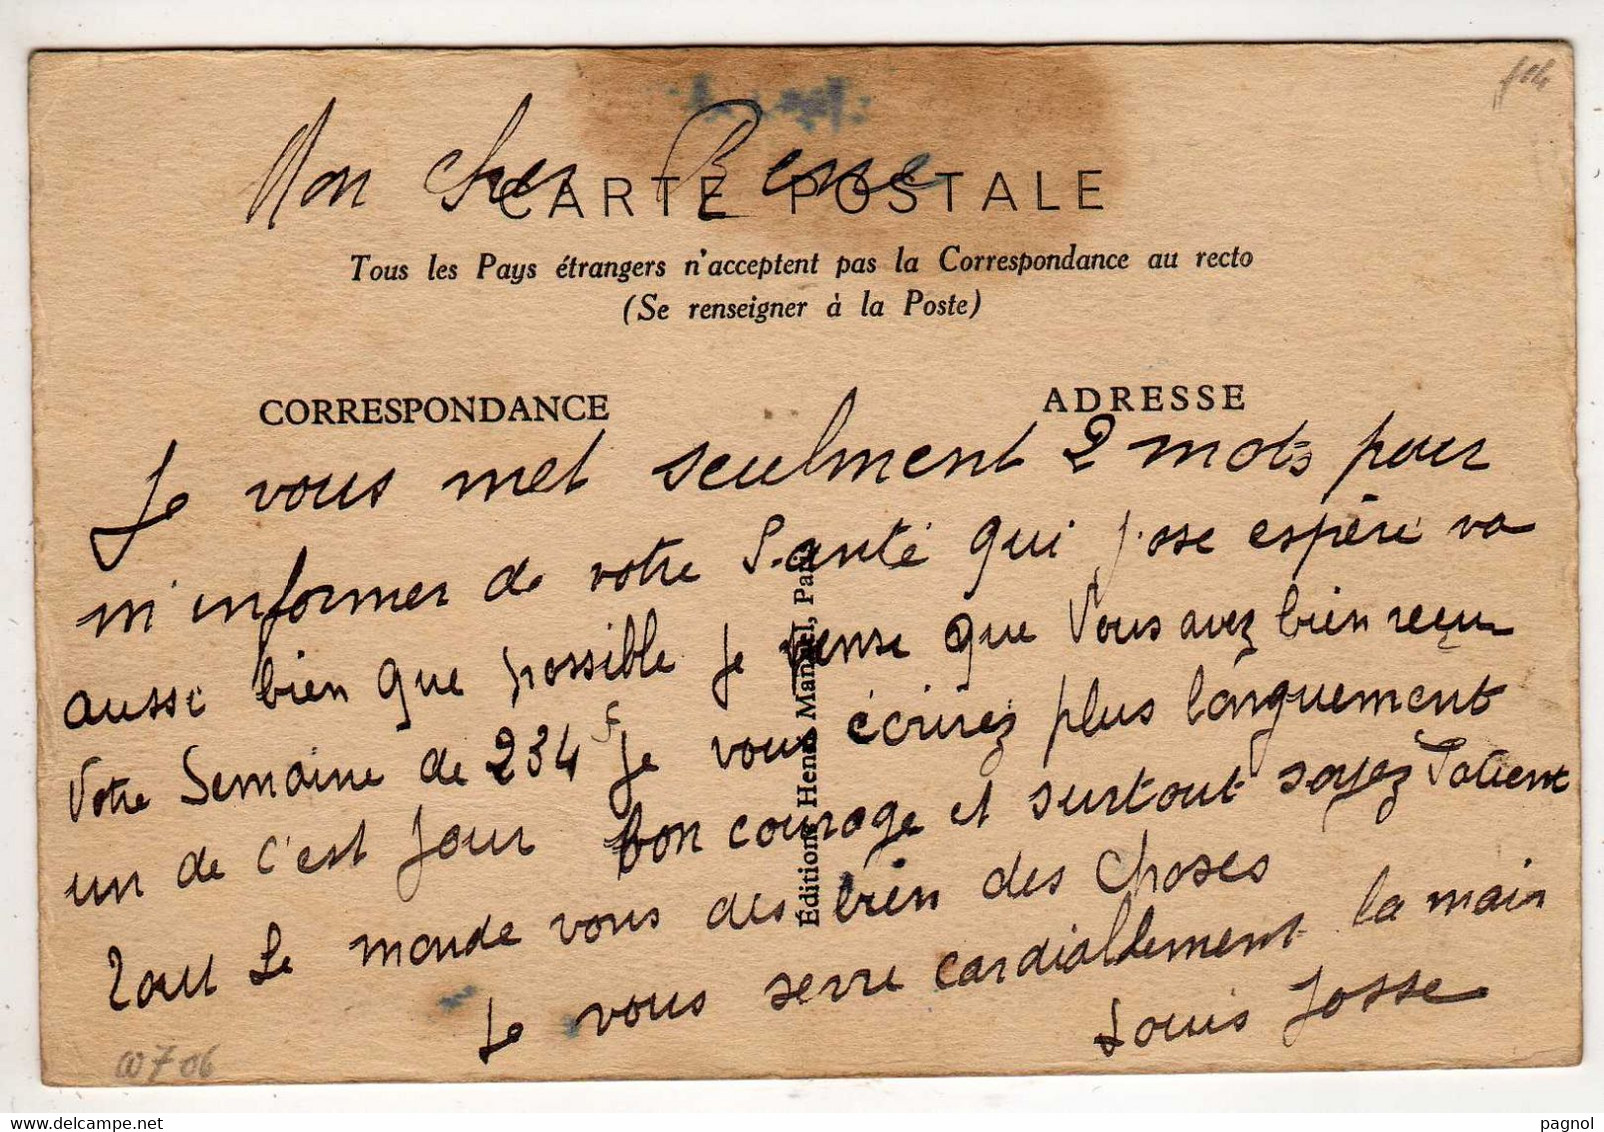 Mon cher Besse
CARTE POSTALE
Tous les Pays étrangers n'acceptent pas la Correspondance au recto
(Se renseigner à la Poste)
CORRESPONDANCE
ADRESSE
Je vous met seulment 2 mots pour
m'informer de votre Santé qui j'ose espère va
aussi bien que possible je pense que Vous avez bien reçu
Votre Semaine de 234 F Je vous écrirez plus longuement
un de c'est jour bon courage et surtout soyez Patient
Tout Le monde vous des bien des choses
Je vous serre cardiallement la main
Louis Josse
Éditions Henri Manuel, Paris
pagnol